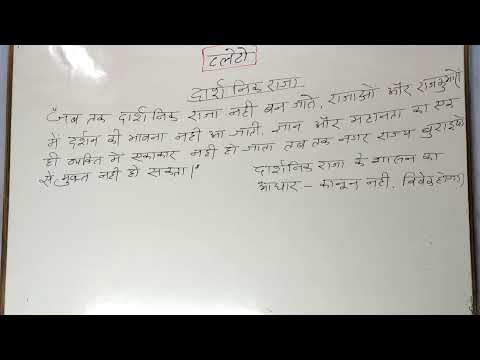 प्लेटो
दार्शनिक राजा
"जब तक दार्शनिक राजा नही बन जाते, राजाओ और राजकुमारों
में दर्शन की भावना नही आ जाती, ज्ञान और महानता का एक
ही व्यक्ति मे एकाकार नही हो जाता तब तक नगर राज्य बुराइयो
से मुक्त नही हो सकता।"
दार्शनिक राजा के शासन का
आधार - कानून नही, विवेक होगा।